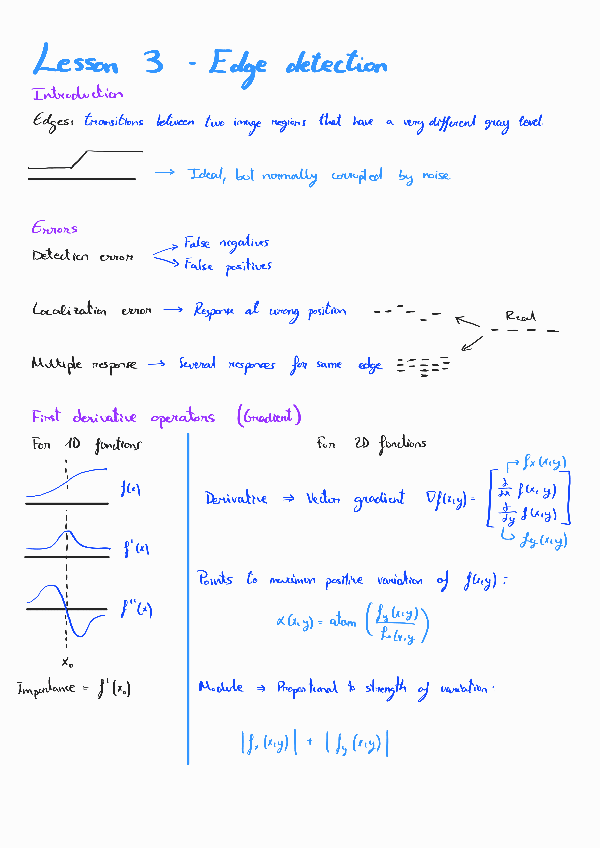 Lesson 3 - Edge detection
Introduction
Edges: transitions between two image regions that have a very different gray level
→ Ideal, but normally corrupted by noise
Errors
Detection error
False negatives
False positives
Localization error → Response at wrong position
Real
Multiple response → Several responses for same edge
First derivative operators (Gradient)
For 1D functions
f(x)
f'(x)
f''(x)
x₀
Importance = f'(x₀)
For 2D functions
fx(x,y)
Derivative ⇒ Vector gradient ∇f(x,y) = [∂/∂x f(x,y)
∂/∂y f(x,y)]
fy(x,y)
Points to maximum positive variation of f(x,y):
α(x,y) = atan (fy(x,y) / fx(x,y)
Module ⇒ Proportional to strength of variation.
|fx(x,y)| + |fy(x,y)|